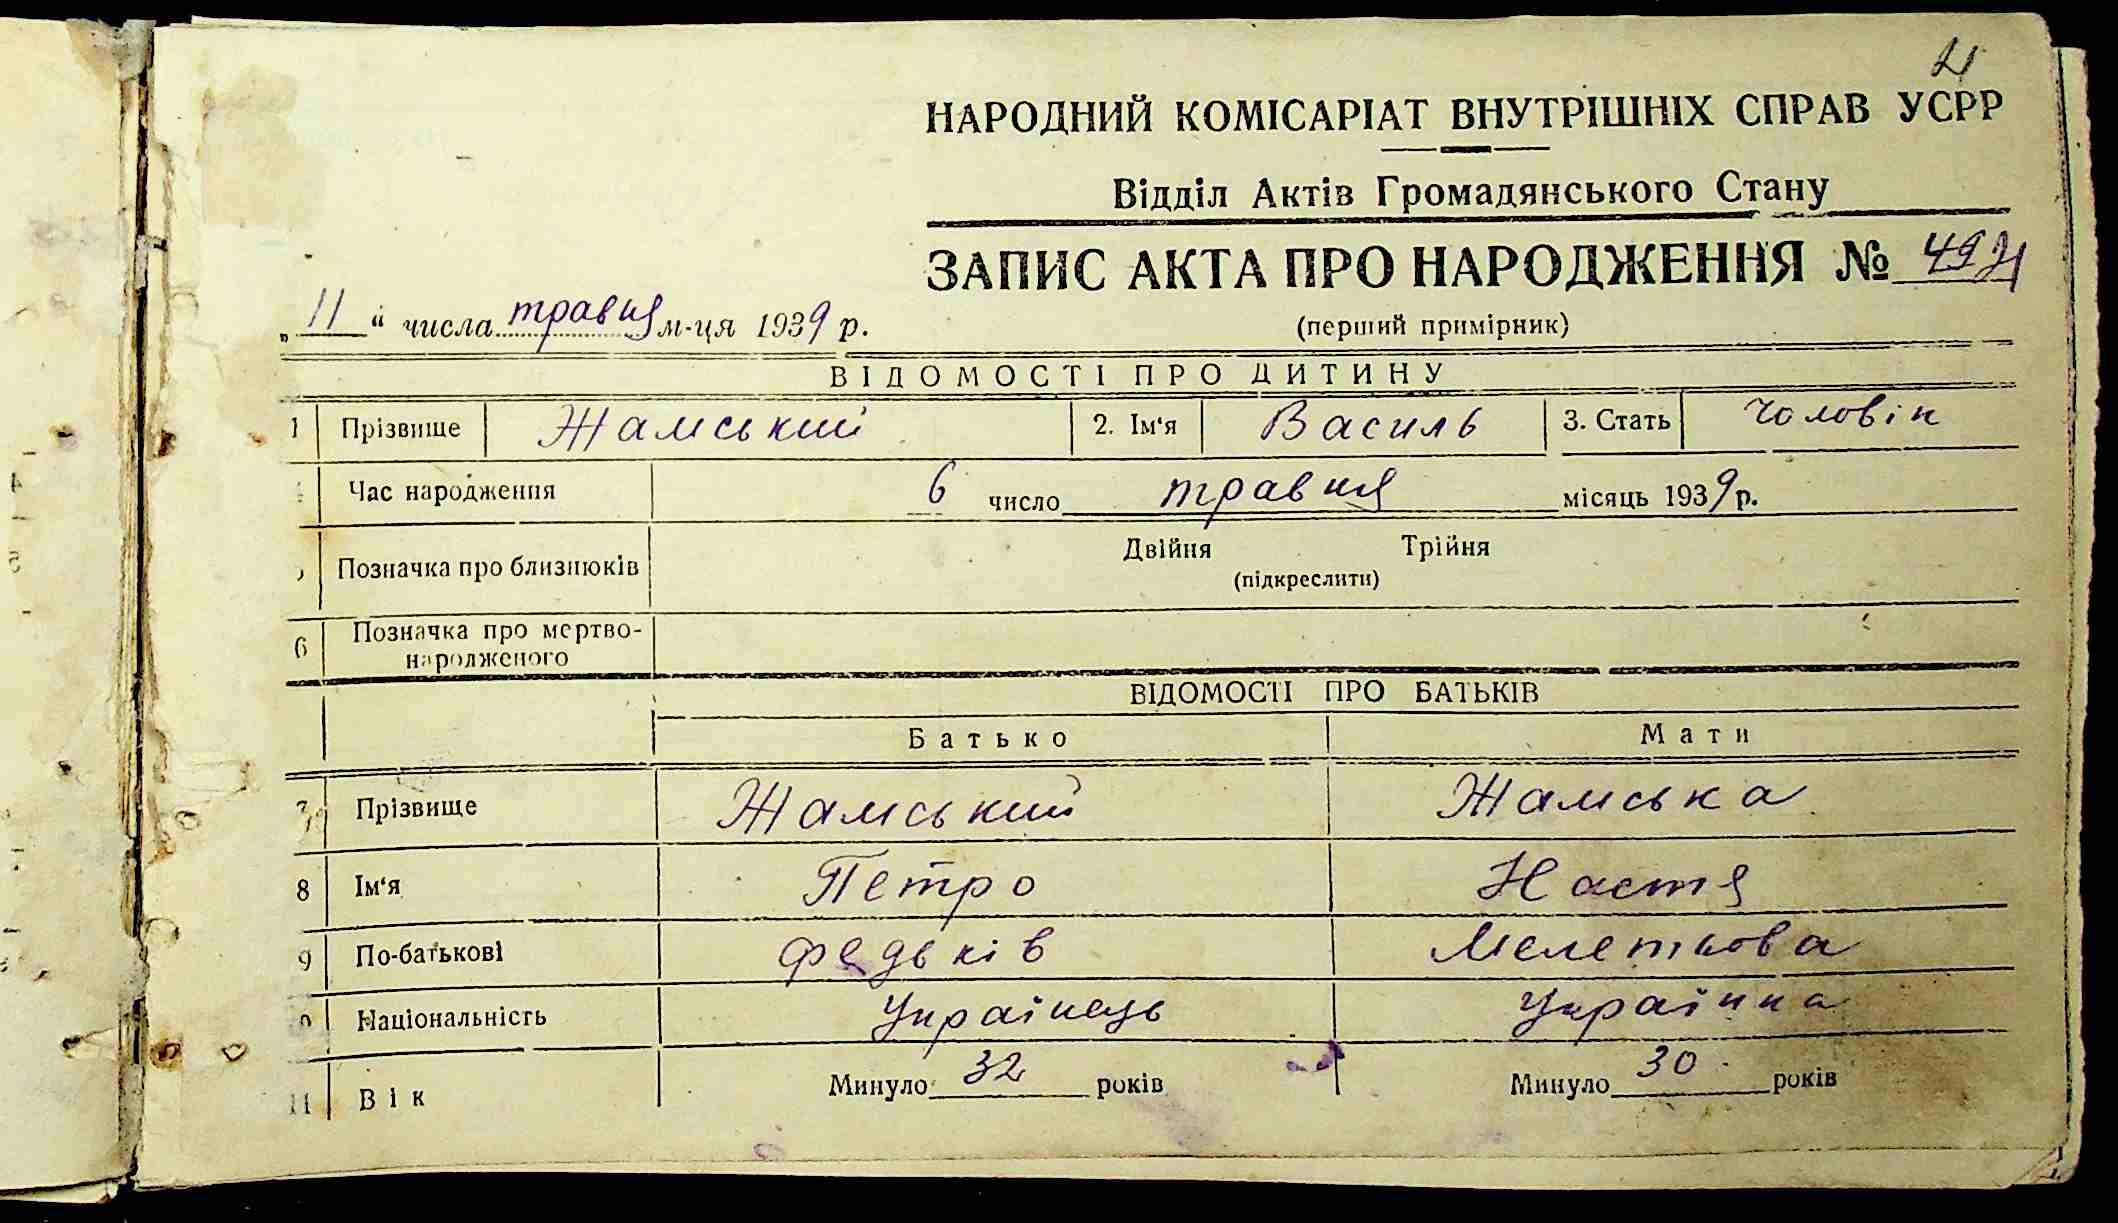 21
НАРОДНИЙ КОМІСАРІАТ ВНУТРІШНІХ СПРАВ УСРР
Відділ Актів Громадянського Стану
ЗАПИС АКТА ПРО НАРОДЖЕННЯ №
„11“ числа травня м-ця 1939 р.
(перший примірник)
ВІДОМОСТІ ПРО ДИТИНУ
1 Прізвище Жамський 2. Ім'я Василь 3. Стать чоловік
Час народження 6 число травня місяць 1939 р.
Позначка про близнюків Двійня Трійня
(підкреслити)
6 Позначка про мертво-
народженого
ВІДОМОСТІ ПРО БАТЬКІВ
Батько Мати
7 Прізвище Жамський Жамська
8 Ім'я Петро Настя
9 По-батькові Федьків Мелеткова
Національність Українець Українка
11 Вік Минуло 32 років Минуло 30 років